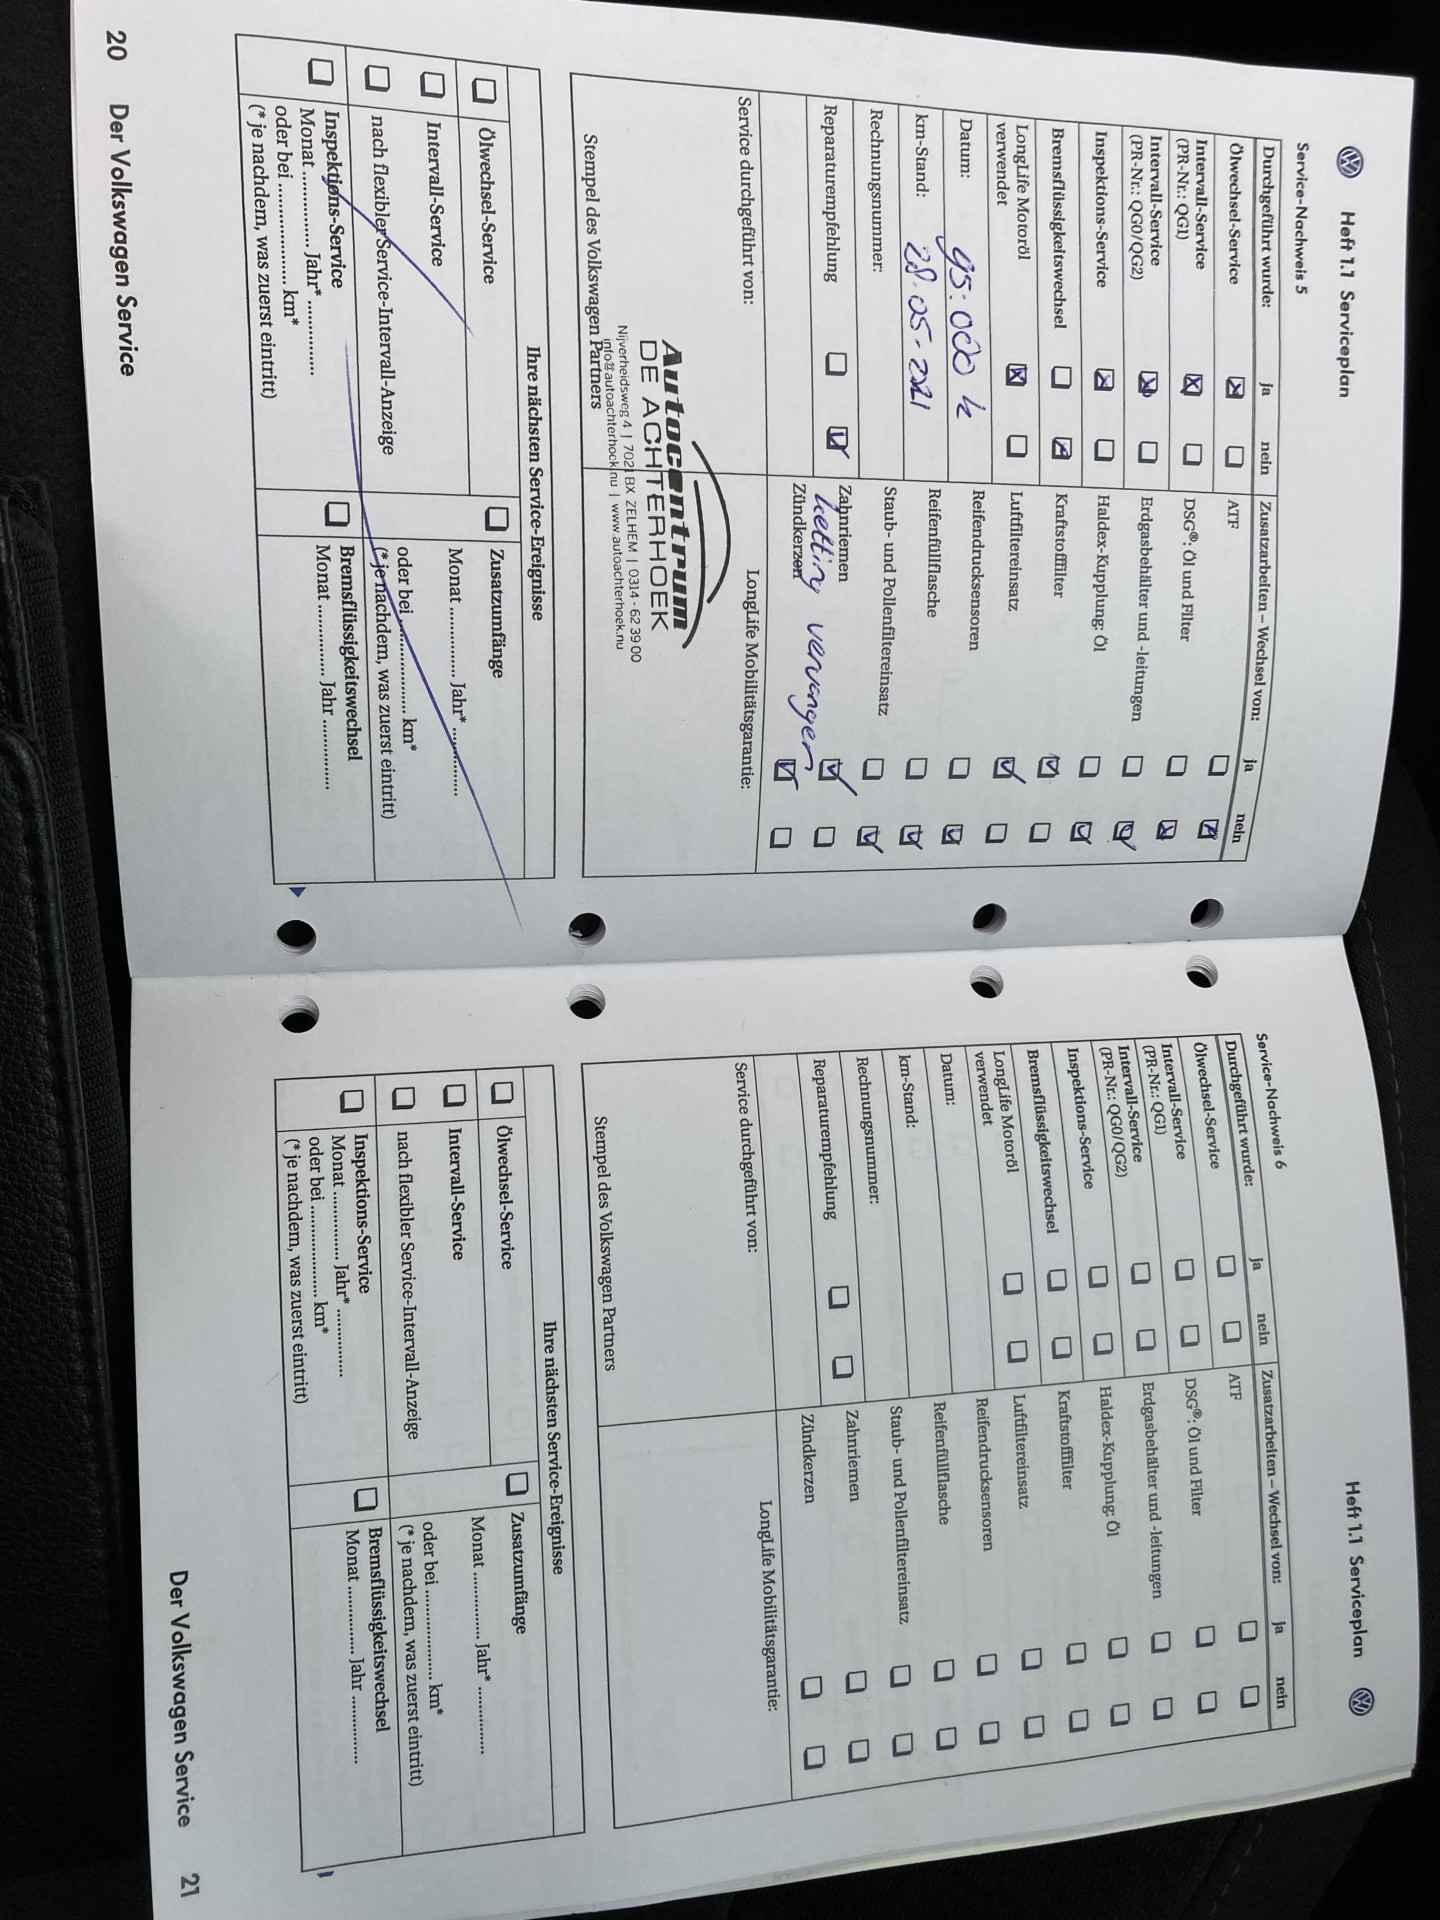 Heft 1.1 Serviceplan
Service-Nachweis 5
Durchgeführt wurde: ja nein
Ölwechsel-Service
Intervall-Service
(PR-Nr.: QG1)
Intervall-Service
(PR-Nr.: QG0/QG2)
Inspektions-Service
Bremsflüssigkeitswechsel
LongLife Motoröl
verwendet
Datum: 95.000 k
km-Stand: 28-05-2021
Rechnungsnummer:
Reparaturempfehlung
Zusatzarbeiten – Wechsel von: ja nein
ATF
DSG®: Öl und Filter
Erdgasbehälter und -leitungen
Haldex-Kupplung: Öl
Kraftstofffilter
Luftfiltereinsatz
Reifendrucksensoren
Reifenfüllflasche
Staub- und Pollenfiltereinsatz
Zahnriemen
ketting vervangen
Zündkerzen
Service durchgeführt von:
LongLife Mobilitätsgarantie:
Autocentrum
DE ACHTERHOEK
Nijverheidsweg 4 | 7021 BX ZELHEM | 0314 - 62 39 00
info@autoachterhoek.nu | www.autoachterhoek.nu
Stempel des Volkswagen Partners
Ihre nächsten Service-Ereignisse
Ölwechsel-Service
Intervall-Service
nach flexibler Service-Intervall-Anzeige
Inspektions-Service
Monat ............... Jahr* ...............
oder bei ..................... km*
(* je nachdem, was zuerst eintritt)
Zusatzumfänge
Monat ............... Jahr* ...............
oder bei ..................... km*
(* je nachdem, was zuerst eintritt)
Bremsflüssigkeitswechsel
Monat ............... Jahr ...............
20 Der Volkswagen Service
Heft 1.1 Serviceplan
Service-Nachweis 6
Durchgeführt wurde: ja nein
Ölwechsel-Service
Intervall-Service
(PR-Nr.: QG1)
Intervall-Service
(PR-Nr.: QG0/QG2)
Inspektions-Service
Bremsflüssigkeitswechsel
LongLife Motoröl
verwendet
Datum:
km-Stand:
Rechnungsnummer:
Reparaturempfehlung
Zusatzarbeiten – Wechsel von: ja nein
ATF
DSG®: Öl und Filter
Erdgasbehälter und -leitungen
Haldex-Kupplung: Öl
Kraftstofffilter
Luftfiltereinsatz
Reifendrucksensoren
Reifenfüllflasche
Staub- und Pollenfiltereinsatz
Zahnriemen
Zündkerzen
Service durchgeführt von:
LongLife Mobilitätsgarantie:
Stempel des Volkswagen Partners
Ihre nächsten Service-Ereignisse
Ölwechsel-Service
Intervall-Service
nach flexibler Service-Intervall-Anzeige
Inspektions-Service
Monat ............... Jahr* ...............
oder bei ..................... km*
(* je nachdem, was zuerst eintritt)
Zusatzumfänge
Monat ............... Jahr* ...............
oder bei ..................... km*
(* je nachdem, was zuerst eintritt)
Bremsflüssigkeitswechsel
Monat ............... Jahr ...............
Der Volkswagen Service 21